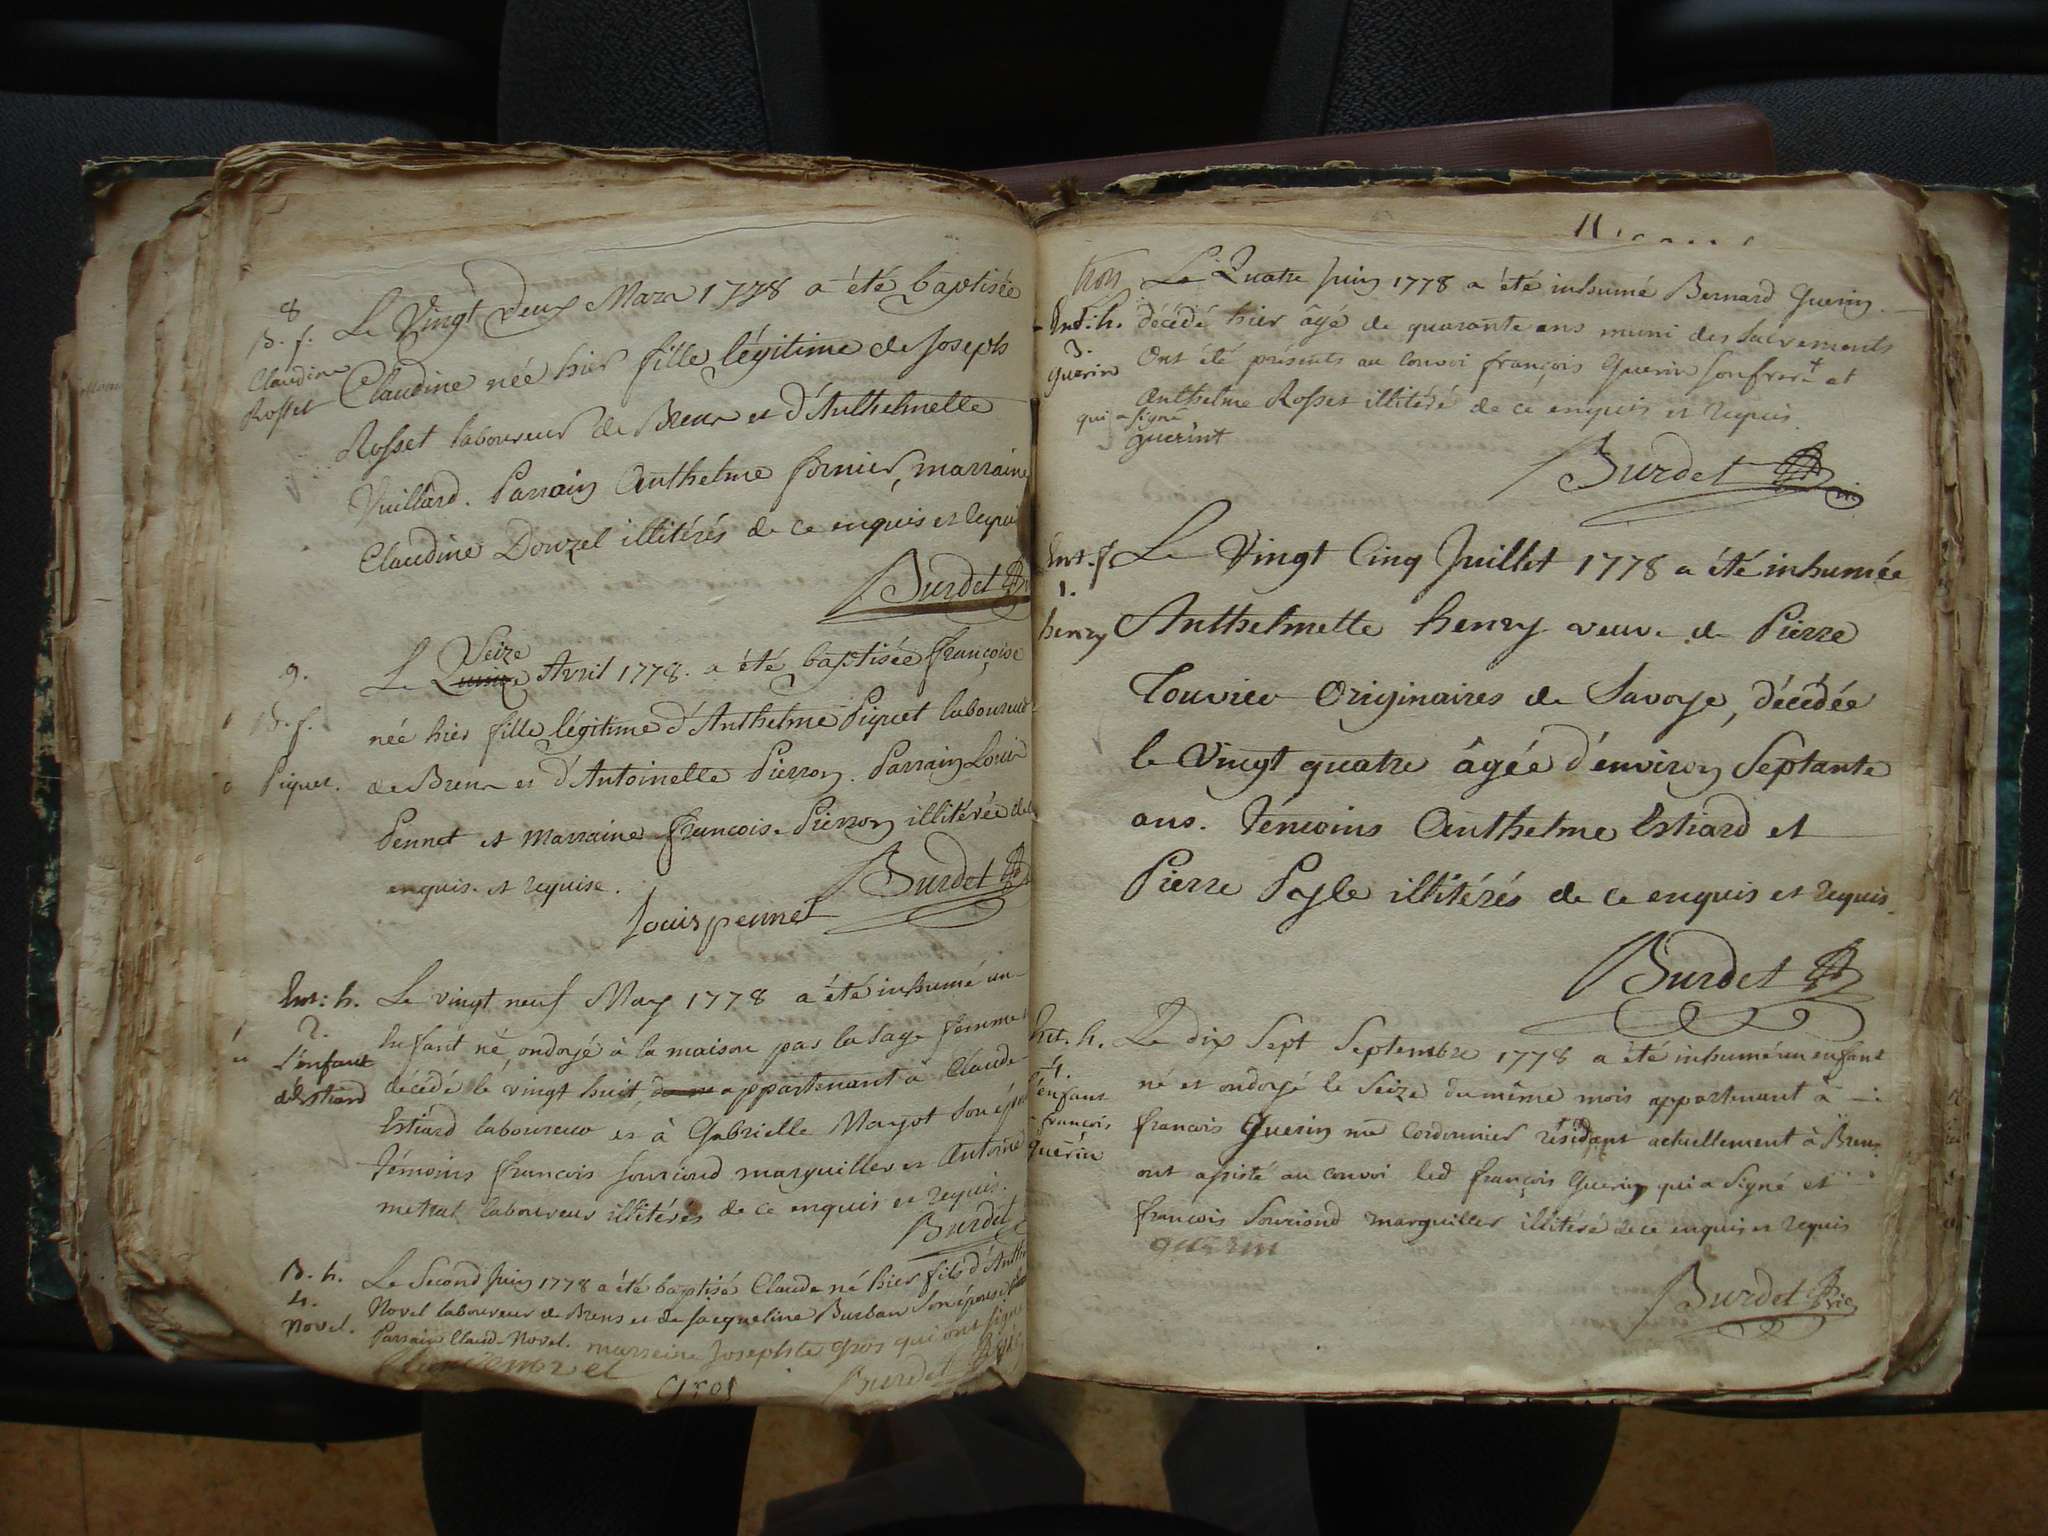 8
B. f.
Claudine
Rosset
Le Vingt deux Mars 1778 a été baptisée
Claudine née hier fille légitime de Joseph
Rosset laboureur de Brens et d'Anthelmette
Vuillard. Parrain Anthelme fornier, marraine
Claudine Douzel illitérés de ce enquis et requis
Burdet
9.
B. f.
Piquet.
Seize
Le Avril 1778. a été baptisée françoise
née hier fille légitime d'Anthelme Piquet laboureur
de Brens et d'Antoinette Pierron. Parrain Louis
Pennet et marraine françoise Pierron illitérée de ce
enquise et requise.
Burdet
Louis pennet
Ent: h.
2.
l'enfant
d'Estiard
Le vingt neuf May 1778 a été inhumé un
Enfant né, ondoyé à la maison par la sage femme
décédé le vingt huit, appartenant à Claude
Estiard laboureur et à Gabrielle Marjot son épouse
Témoins françois Souriond marguiller et Antoine
metral laboureur illitérés de ce enquis et requis.
Burdet
B. h.
4.
Novel.
Le Second Juin 1778 a été baptisé Claude né hier fils d'Anth
Novel laboureur de Brens et de Jacqueline Burban son épouse
Parrain Claude Novel. marreine Josephte gros qui ont signé
Claude novel
gros
Burdet
11
trois
Ent: h.
3.
Guerin
Le Quatre Juin 1778 a été inhumé Bernard Guerin
décédé hier âgé de quarante ans muni des Sacrements
Ont été présents au convoi françois Guerin son frere + et
Anthelme Rosset illitéré de ce enquis et requis
qui a signé
guerint
Burdet
Ent. f
1.
henry
Le Vingt Cinq Juillet 1778 a été inhumée
Anthelmette henry veuve de Pierre
Touvier Originaires de Savoye, décédée
le Vingt quatre âgée d'environ Septante
ans. Témoins Anthelme Estiard et
Pierre Payle illitérés de ce enquis et requis.
Burdet
Ent. h.
4.
l'enfant
françois
guerin
Le dix Sept Septembre 1778 a été inhumé un enfant
né et ondoyé le Seize du même mois appartenant à
françois Guerin me Cordonnier résidant actuellement à Brens
ont assisté au convoi led françois Guerin qui a signé et
françois Souriond marguiller illitéré de ce enquis et requis
guerin
Burdet